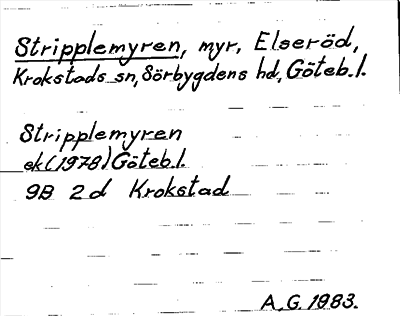 Stripplemyren, myr, Elseröd,
Krokstads sn, Sörbygdens hd, Göteb. l.
Stripplemyren
ek (1978) Göteb. l.
9B 2d Krokstad
A.G. 1983.